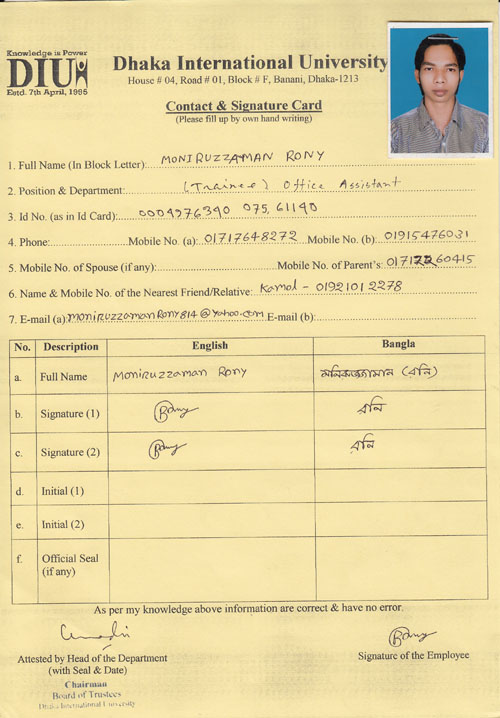 Knowledge is Power
DIU
Estd. 7th April, 1995
Dhaka International University
House # 04, Road # 01, Block # F, Banani, Dhaka-1213
Contact & Signature Card
(Please fill up by own hand writing)
1. Full Name (In Block Letter): MONIRUZZAMAN RONY
2. Position & Department: (Trainee) Office Assistant
3. Id No. (as in Id Card): 0004976390 075, 61140
4. Phone: Mobile No. (a): 01717648272 Mobile No. (b): 01915476031
5. Mobile No. of Spouse (if any): Mobile No. of Parent's: 01712260415
6. Name & Mobile No. of the Nearest Friend/Relative: Kamol - 01921012278
7. E-mail (a): moniruzzamanRony814@yahoo.com E-mail (b):
No. Description English Bangla
a. Full Name Moniruzzaman Rony মনিরুজ্জামান (রনি)
b. Signature (1) Rony রনি
c. Signature (2) Rony রনি
d. Initial (1)
e. Initial (2)
f. Official Seal
(if any)
As per my knowledge above information are correct & have no error.
Rony
Attested by Head of the Department Signature of the Employee
(with Seal & Date)
Chairman
Board of Trustees
Dhaka International University